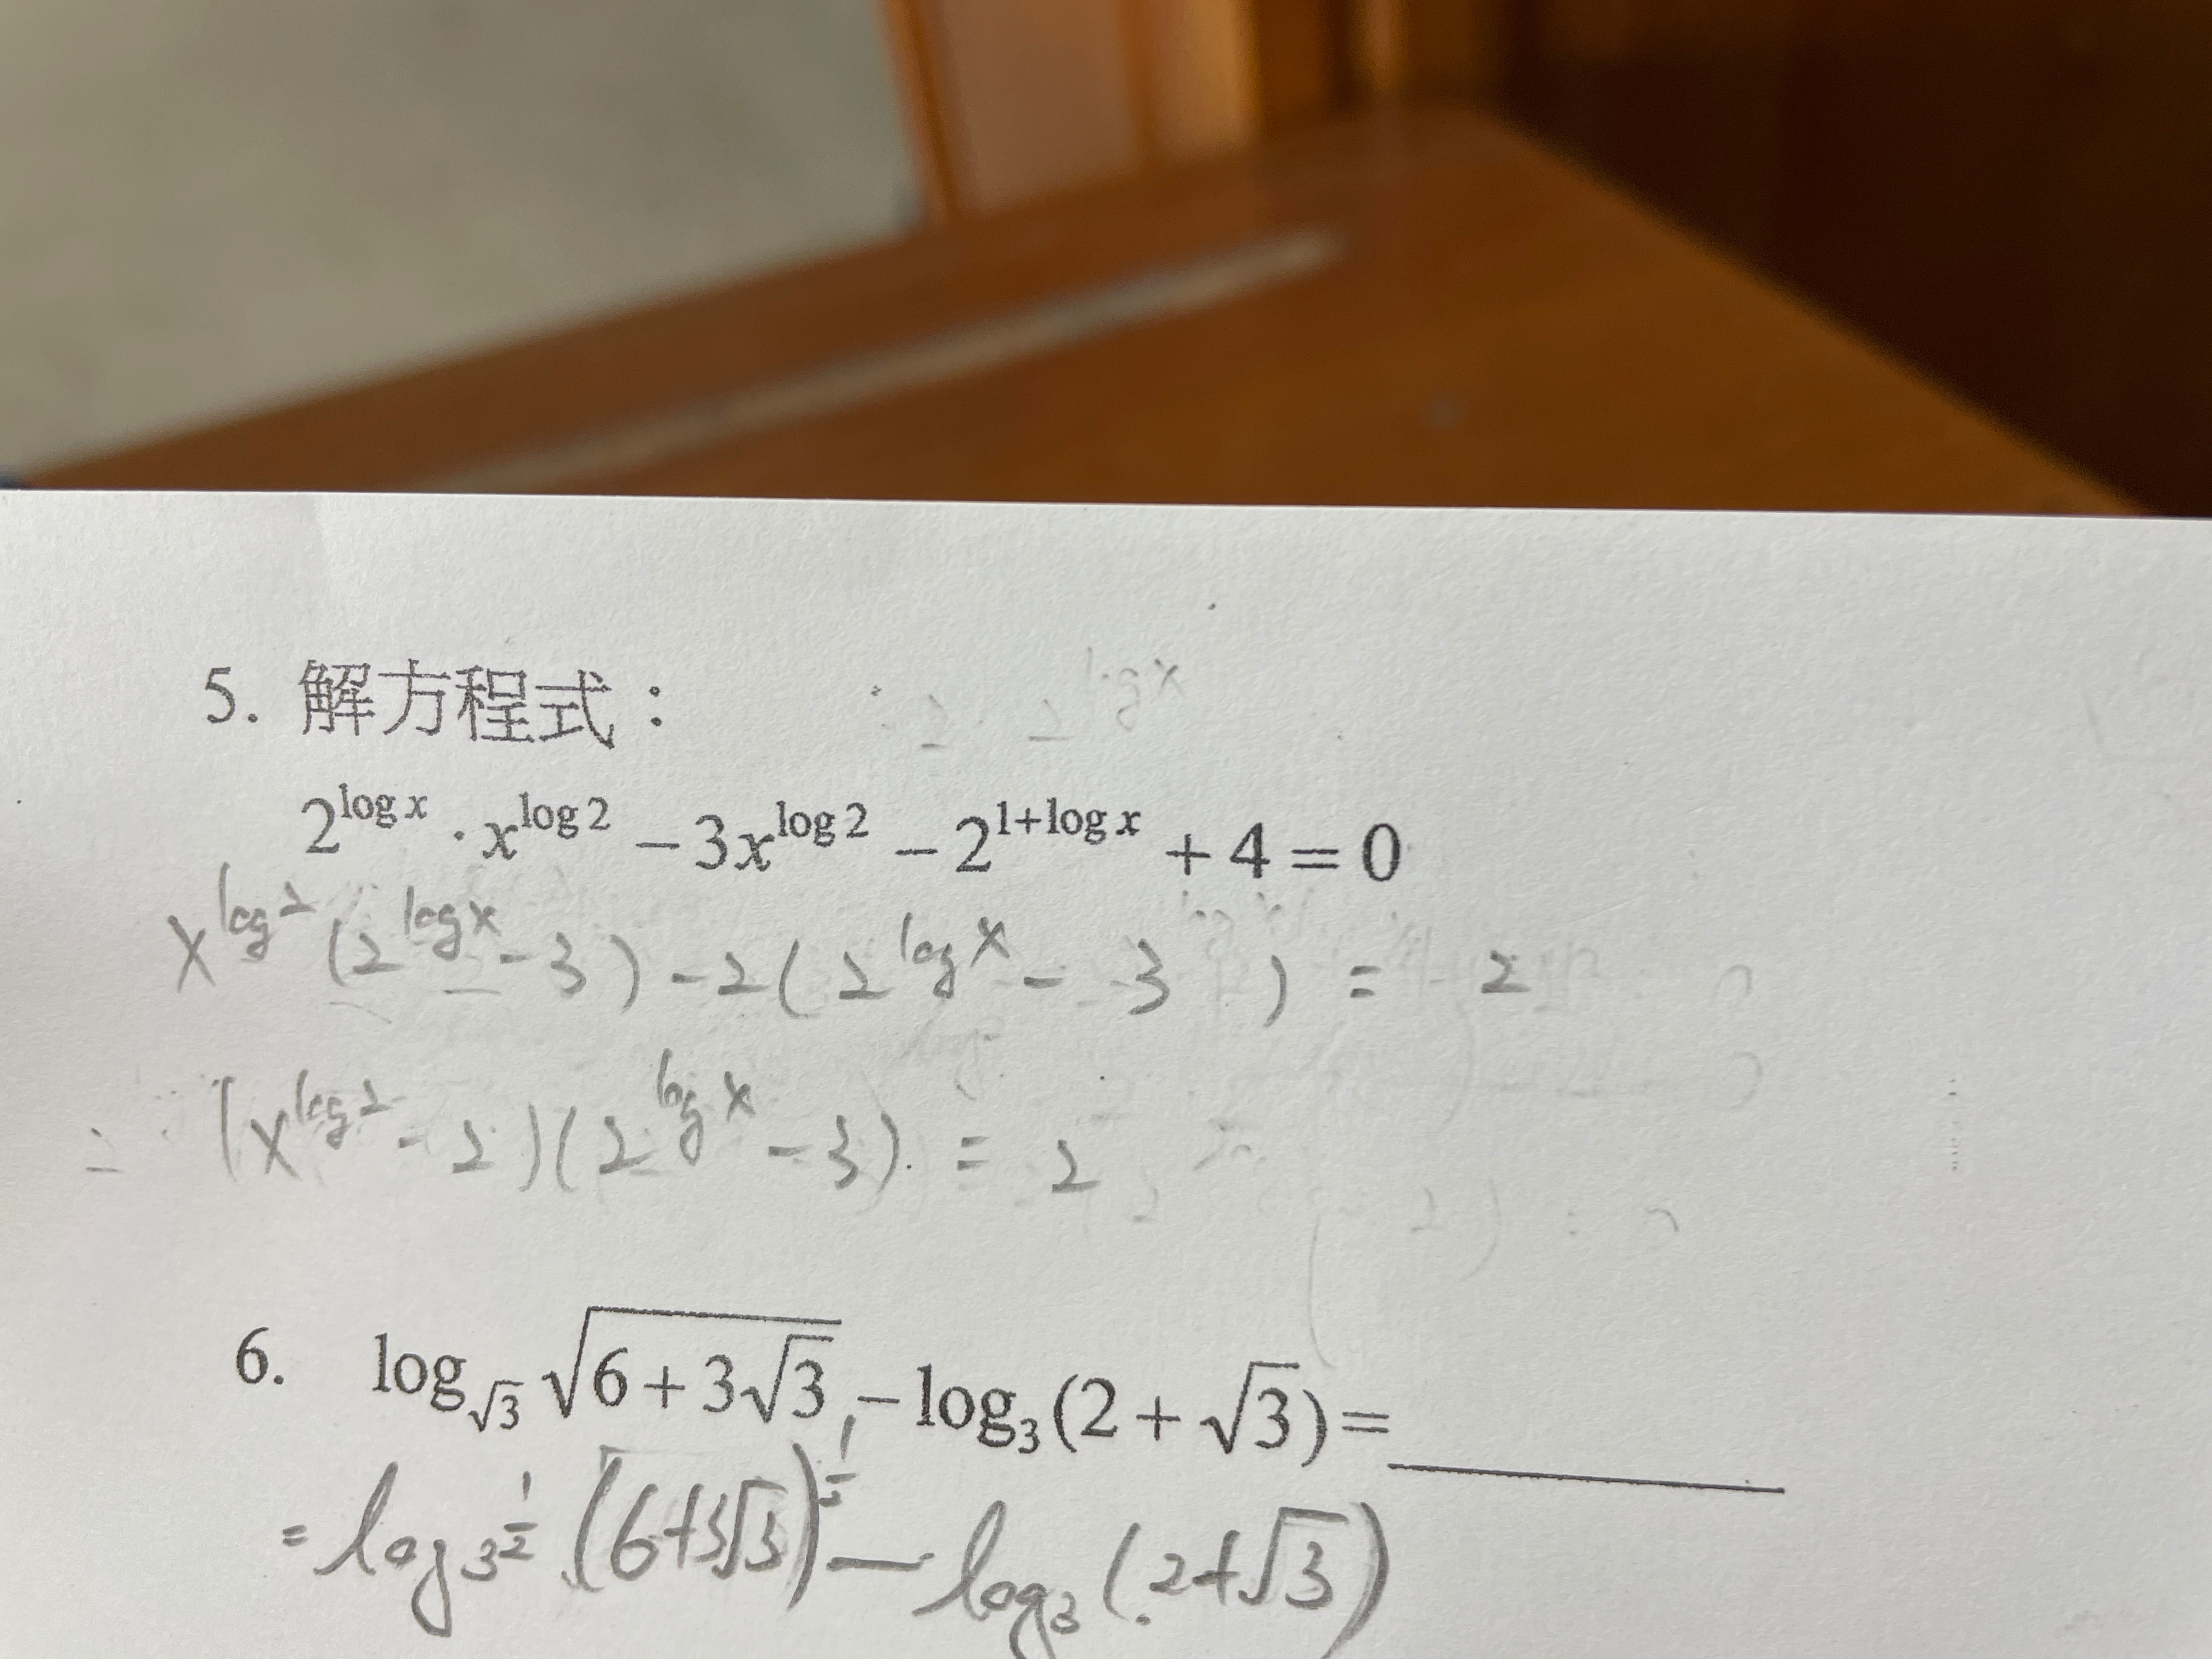 5. 解方程式：
2^{log x} · x^{log 2} − 3x^{log 2} − 2^{1+log x} + 4 = 0
x^{log 2} (2^{log x} − 3) − 2(2^{log x} − 3) = 2
= (x^{log 2} − 2)(2^{log x} − 3) = 2
6. log_{√3} √(6 + 3√3) − log_3 (2 + √3) =
= log_{3^{1/2}} (6 + 3√3)^{1/2} − log_3 (2 + √3)